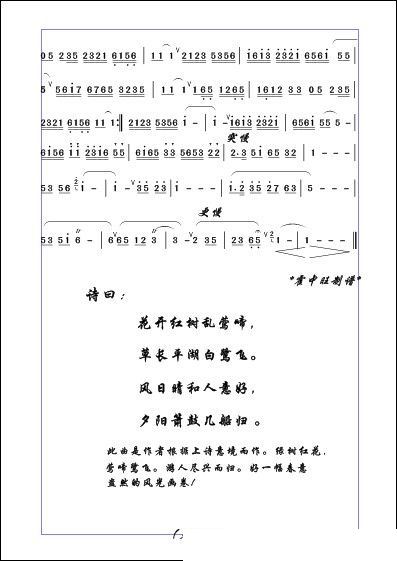 05 235 2321 6156 | 11 1 2123 5356 | 1613 2321 6561 55
5 5617 6765 3235 | 11 1 165 1265 | 1612 33 05 235
2321 6156 11 1 :‖ 2123 5356 1 - | 1 - 1613 2321 | 6561 55 5 -
突慢
6156 11 2316 55 | 6165 33 5653 22 | 2.3 51 65 32 | 1 - - -
53 56 1 - | 1 - 35 23 | 1 - - - | 1.2 35 27 63 | 5 - - -
更慢
53 51 6 - | 665 12 3 | 3 - 2 35 | 23 65 1 - | 1 - - -
"霍中旺制谱"
诗曰：
花开红树乱莺啼，
草长平湖白鹭飞。
风日晴和人意好，
夕阳箫鼓几船归。
此曲是作者根据上诗意境而作。绿树红花，
莺啼鹭飞。游人尽兴而归。好一幅春意
盎然的风光画卷！